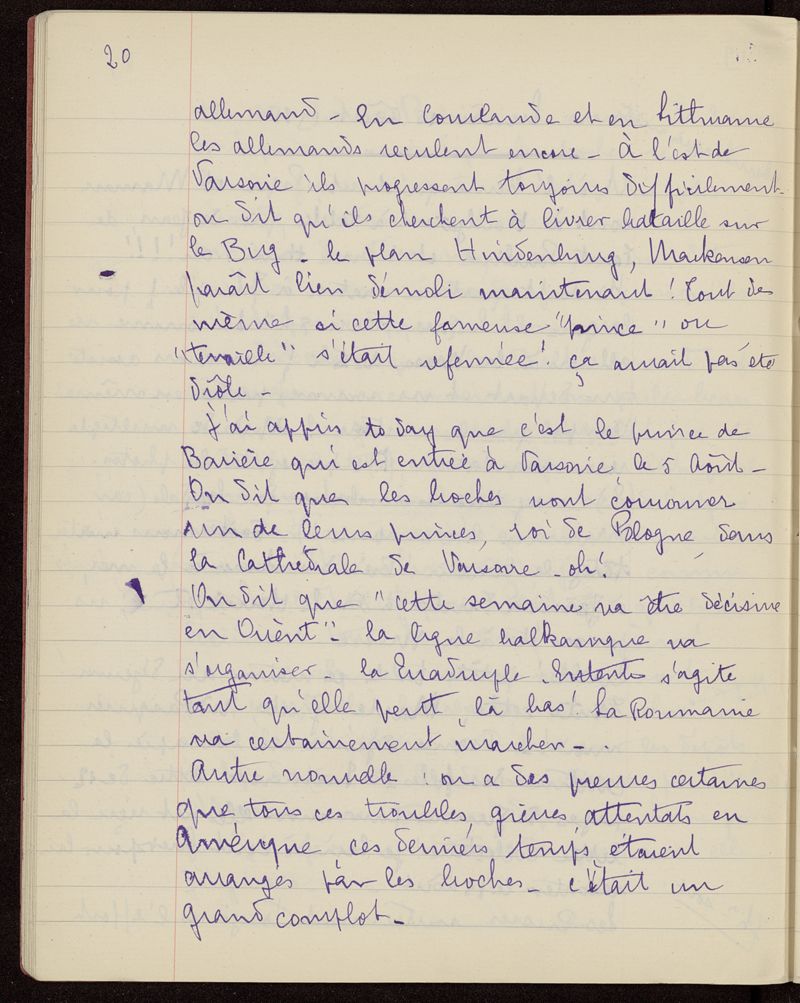 20
allemand - En Courlande et en Litthuanie
les allemands reculent encore - À l'est de
Varsovie ils progressent toujours difficilement -
on dit qu'ils cherchent à livrer bataille sur
le Bug - le plan Hindenburg, Mackensen
paraît bien démoli maintenant ! Tout de
même si cette fameuse "pince" ou
"tenaille" s'était refermée ! ça aurait pas été
drôle -
J'ai appris to day que c'est le prince de
Bavière qui est entré à Varsovie le 5 Août -
On dit que les boches vont couronner
un de leurs princes, roi de Pologne, dans
la Cathédrale de Varsovie - oh !
On dit que "cette semaine va être décisive
en Orient" - la ligue balkanique va
s'organiser - la Quadruple Entente s'agite
tant qu'elle peut là bas ! La Roumanie
va certainement marcher - .
Autre nouvelle : on a des preuves certaines
que tous ces troubles, grèves, attentats en
Amérique ces derniers temps, étaient
arrangés par les boches - c'était un
grand complot -